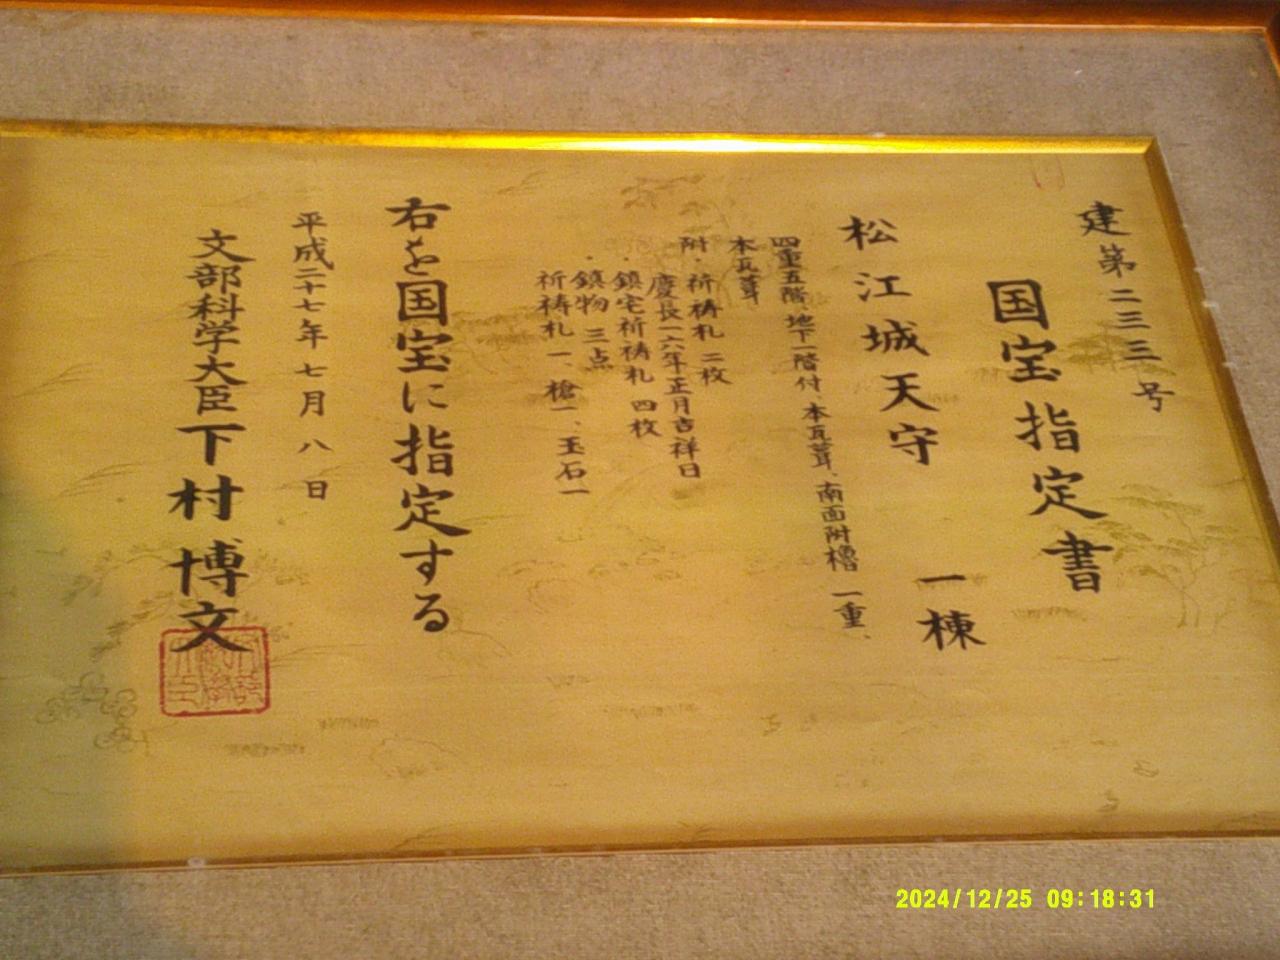 建第二三三号
国宝指定書
松江城天守 一棟
四重五階、地下一階付、本瓦葺、南面附櫓 一重、
本瓦葺
附・祈祷札 二枚
慶長一六年正月吉祥日
・鎮宅祈祷札 四枚
・鎮物 三点
祈祷札一、槍一、玉石一
右を国宝に指定する
平成二十七年七月八日
文部科学大臣下村博文
2024/12/25 09:18:31